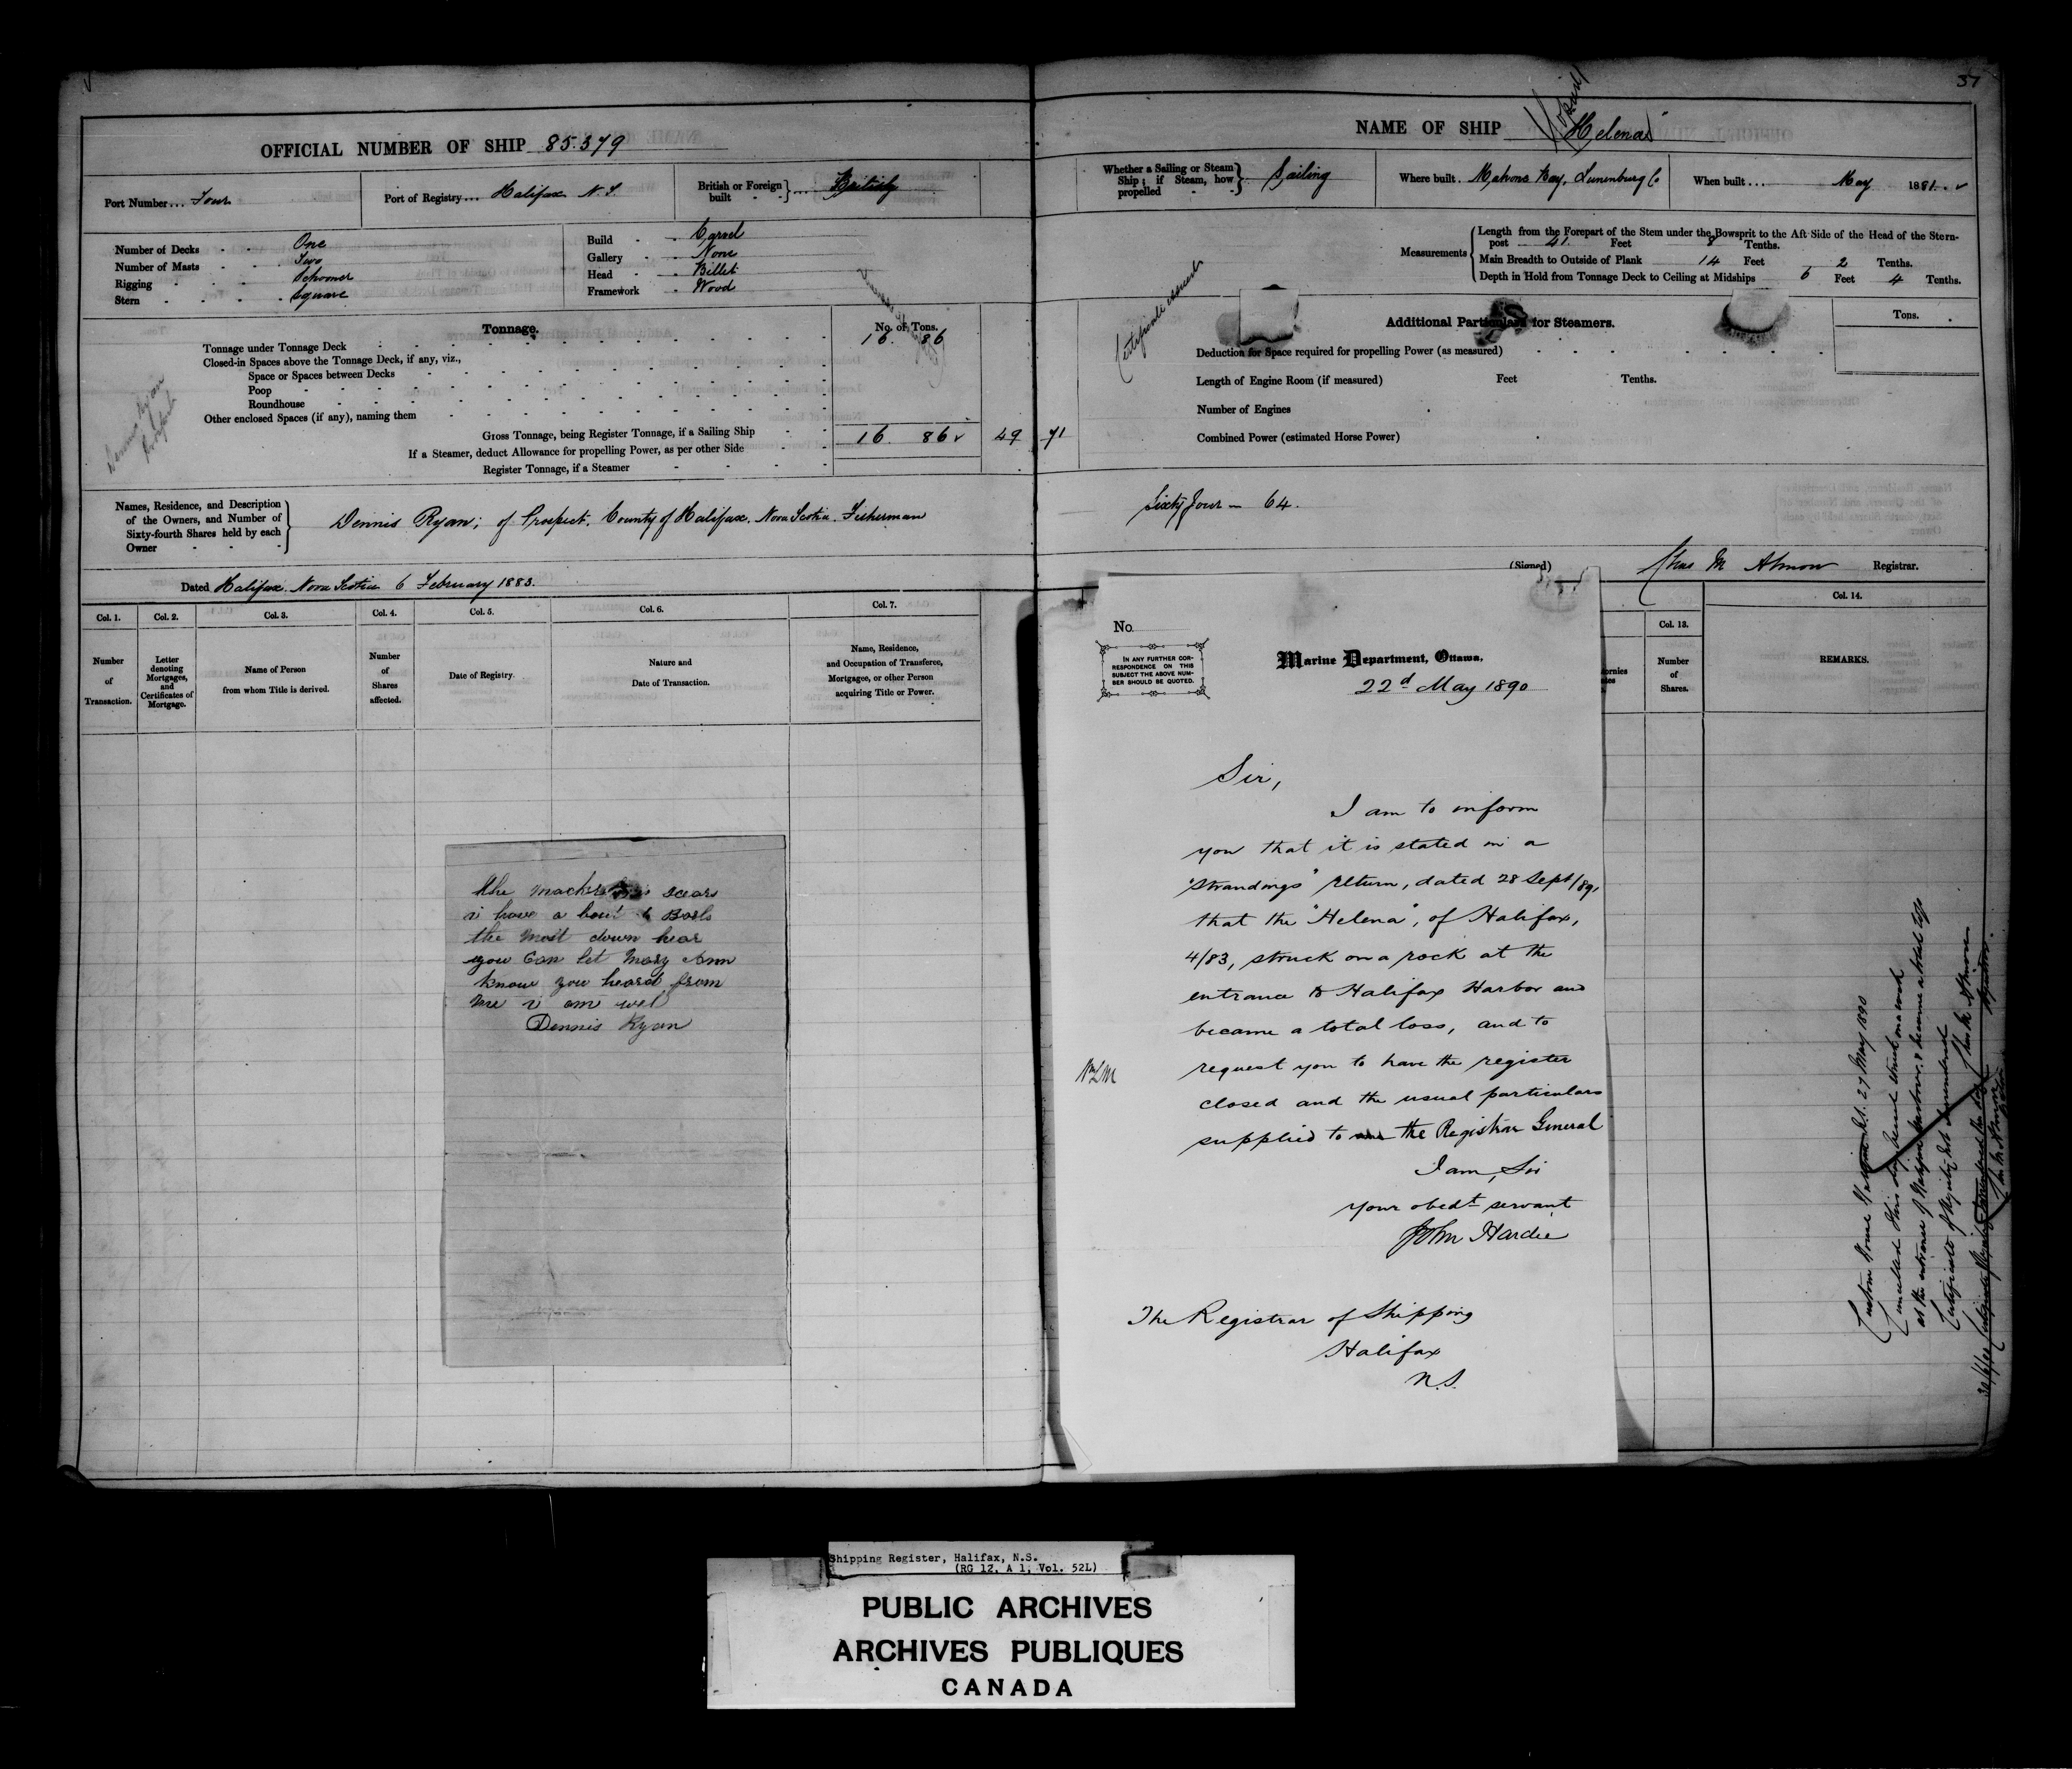 37
OFFICIAL NUMBER OF SHIP 85.379
Port Number... Four
Port of Registry... Halifax N.S
British or Foreign built - - } .... British
Number of Decks - - One
Number of Masts - - Two
Rigging - - - Schooner
Stern - - - - Square
Build - - Carvel
Gallery - - None
Head - - Billet
Framework - Wood
Tonnage.
No. of Tons.
Tonnage under Tonnage Deck 16 86
Closed-in Spaces above the Tonnage Deck, if any, viz.,
Space or Spaces between Decks
Poop
Roundhouse
Other enclosed Spaces (if any), naming them
Gross Tonnage, being Register Tonnage, if a Sailing Ship 16 86 49 71
If a Steamer, deduct Allowance for propelling Power, as per other Side
Register Tonnage, if a Steamer
Dennis Ryan
Prospect
Names, Residence, and Description
of the Owners, and Number of
Sixty-fourth Shares held by each
Owner
Dennis Ryan; of Prospect, County of Halifax. Nova Scotia. Fisherman
Dated Halifax. Nova Scotia 6 February 1883.
Col. 1.
Number
of
Transaction.
Col. 2.
Letter
denoting
Mortgages,
and
Certificates of
Mortgage.
Col. 3.
Name of Person
from whom Title is derived.
Col. 4.
Number
of
Shares
affected.
Col. 5.
Date of Registry.
Col. 6.
Nature and
Date of Transaction.
Col. 7.
Name, Residence,
and Occupation of Transferee,
Mortgagee, or other Person
acquiring Title or Power.
the scars
i have a bout 6 Barls
the most down hear
you Can let Mary Ann
know you heard from
me i am wel
Dennis Ryan
NAME OF SHIP "Helena"
Whether a Sailing or Steam
Ship; if Steam, how
propelled - - } Sailing
Where built. Mahone Bay, Lunenburg Co
When built ... May 1881.
Measurements
Length from the Forepart of the Stem under the Bowsprit to the Aft Side of the Head of the Stern-
post 41. Feet 8 Tenths.
Main Breadth to Outside of Plank 14 Feet 2 Tenths.
Depth in Hold from Tonnage Deck to Ceiling at Midships 6 Feet 4 Tenths.
Certificate issued
Additional Particulars for Steamers.
Tons.
Deduction for Space required for propelling Power (as measured)
Length of Engine Room (if measured) Feet Tenths.
Number of Engines
Combined Power (estimated Horse Power)
Sixty four — 64.
(Signed) Chas M Almon Registrar.
Col. 13.
Number
of
Shares.
Col. 14.
REMARKS.
No.
IN ANY FURTHER COR-
RESPONDENCE ON THIS
SUBJECT THE ABOVE NUM-
BER SHOULD BE QUOTED.
Marine Department, Ottawa.
22d May 1890
Sir,
I am to inform
you that it is stated in a
"Strandings" return, dated 28 Sept/89,
that the "Helena", of Halifax,
4/83, struck on a rock at the
entrance to Halifax Harbor and
became a total loss, and to
request you to have the register
closed and the usual particulars
supplied to the Registrar General
I am, Sir
your obedt servant
John Hardie
The Registrar of Shipping
Halifax
N.S.
Custom House Halifax N.S. 27 May 1890
Cancelled this day. Vessel struck on a rock
at the entrance of Halifax harbour, & became a total loss
Certificate of Registry not surrendered
Chas M Almon
Registrar.
Shipping Register, Halifax, N.S.
(RG 12, A 1, Vol. 52L)
PUBLIC ARCHIVES
ARCHIVES PUBLIQUES
CANADA